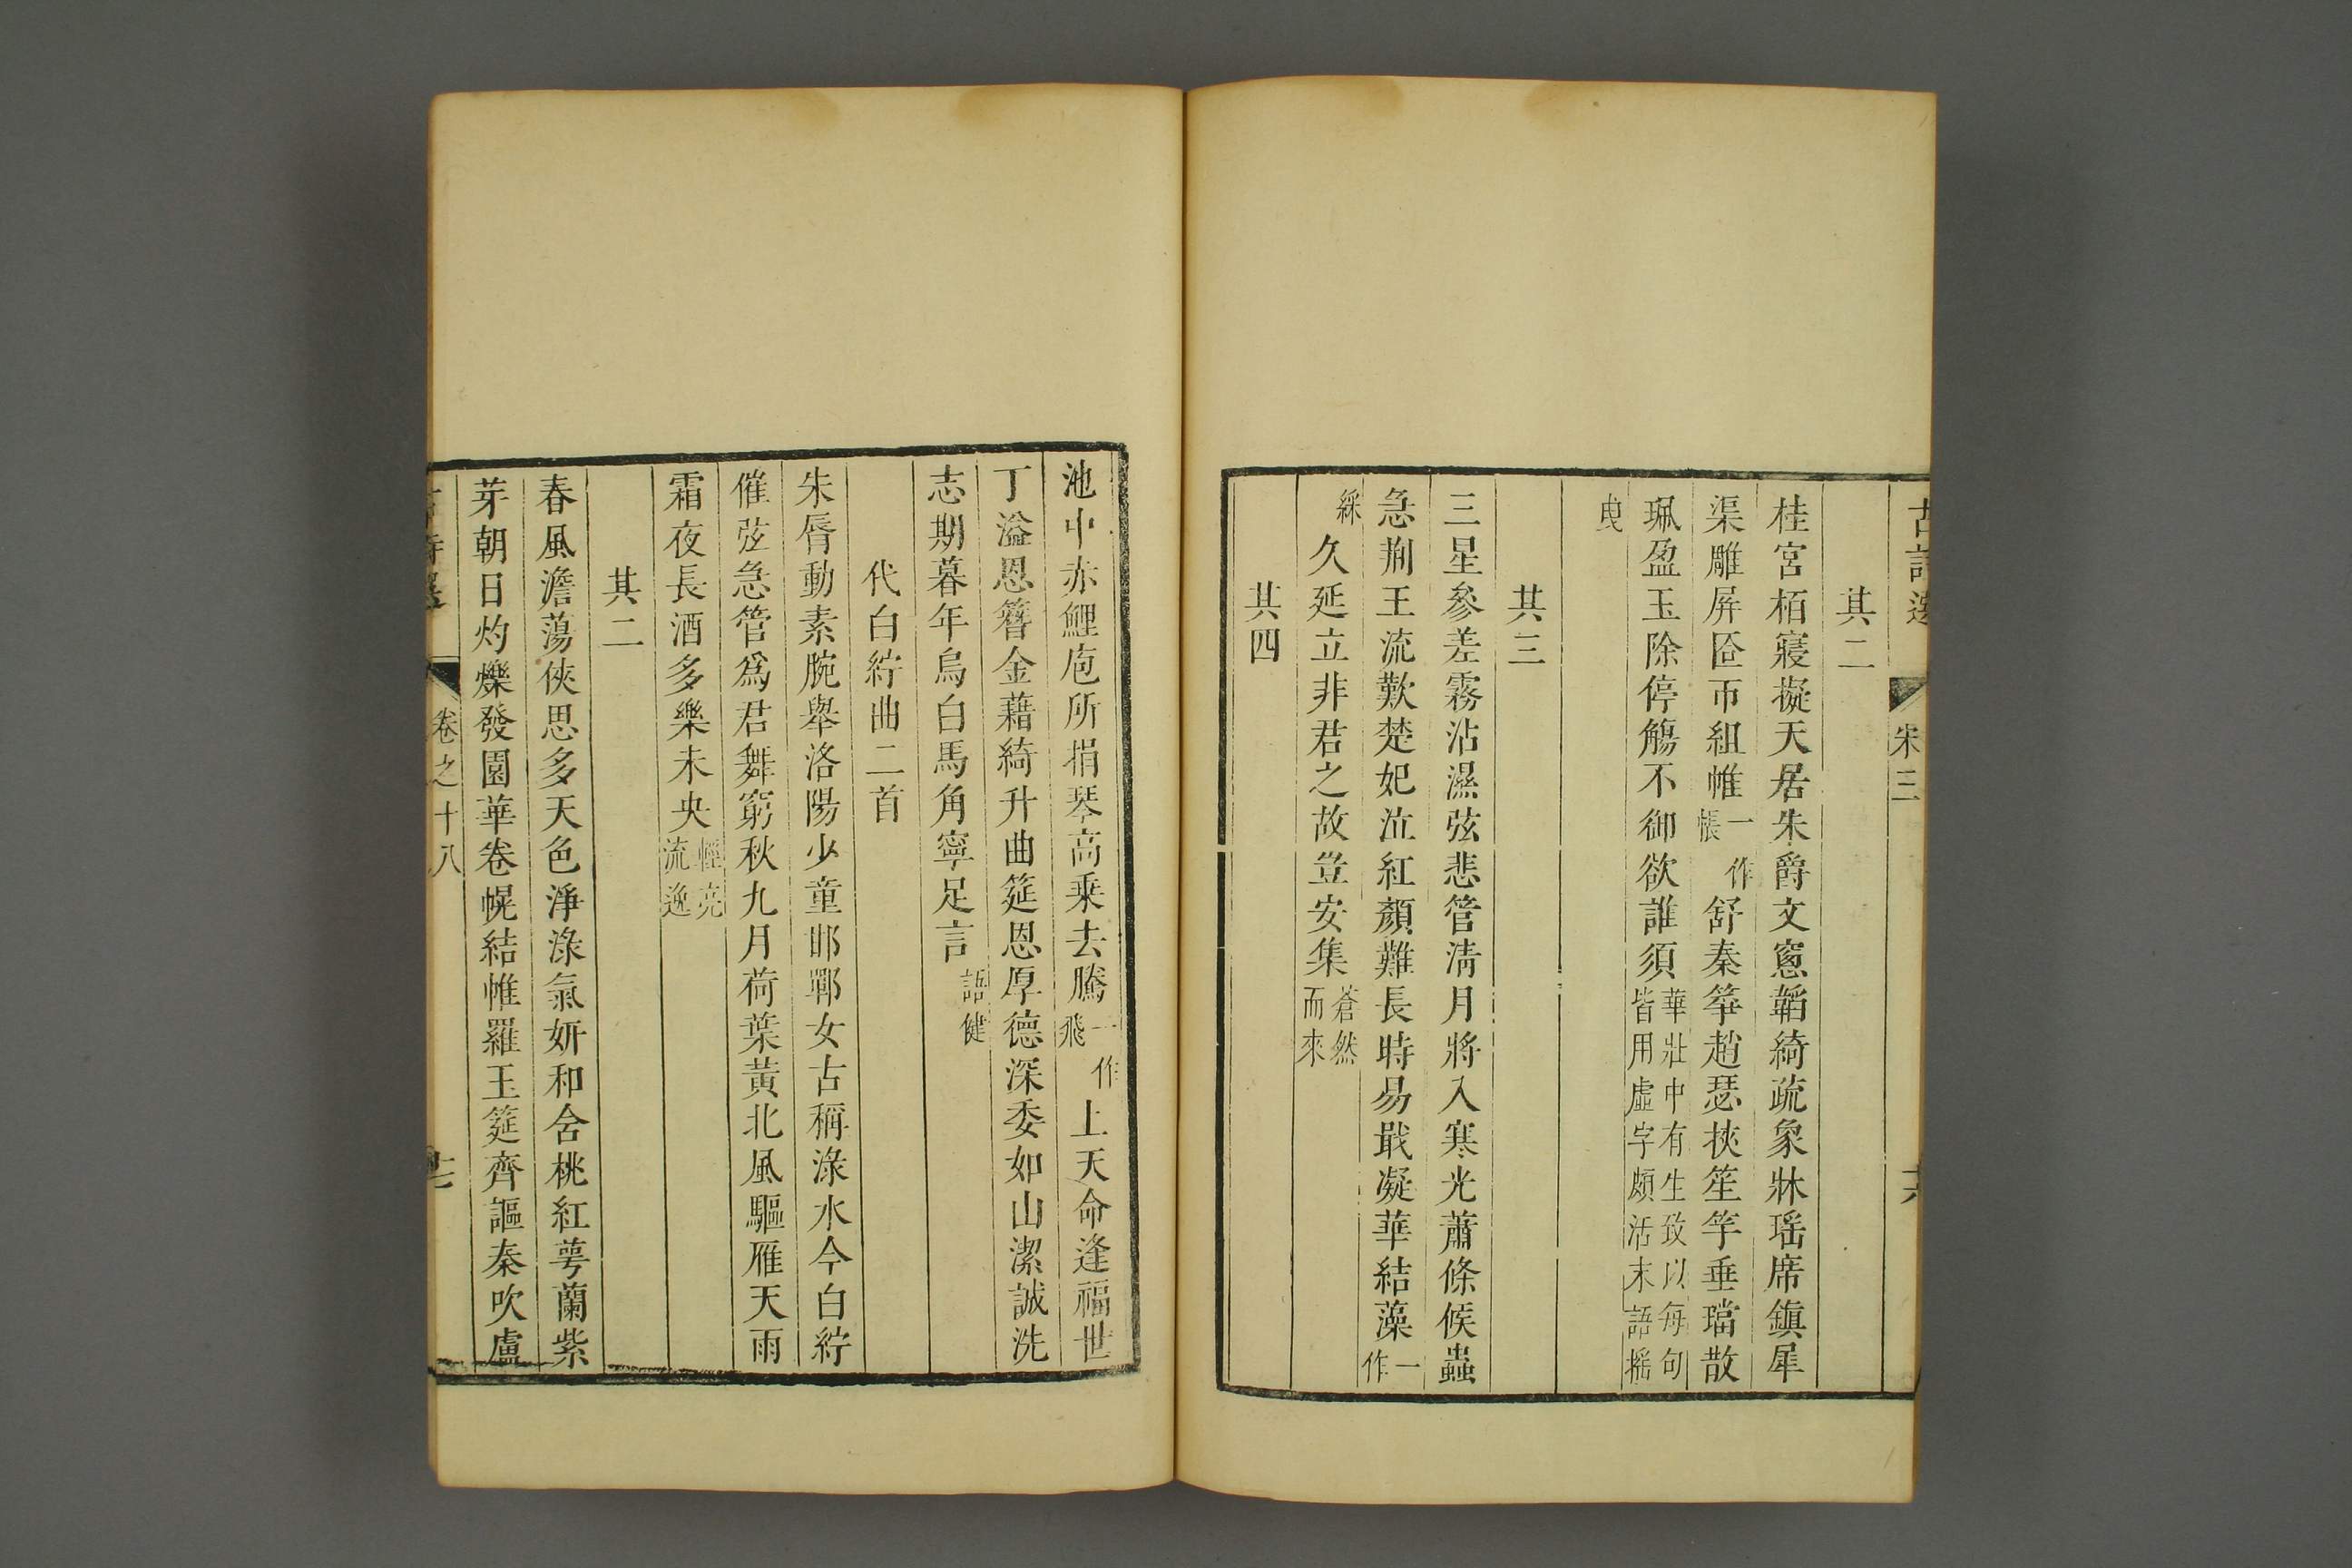 古詩選
宋三
其二
桂宮栢寢擬天居朱爵文窻韜綺疏象牀瑤席鎮犀
渠雕屏匼帀組帷一作帳舒秦箏趙瑟挾笙竽垂璫散
珮盈玉除停觴不御欲誰須華壯中有生致以每句皆用虛字頗活末語搖
曳
其三
三星參差霧沾濕弦悲管清月將入寒光蕭條候蟲
急荆王流歎楚妃泣紅顏難長時易戢凝華結藻一作
綵久延立非君之故豈安集蒼然而來
其四
池中赤鯉庖所捐琴高乘去騰一作飛上天命逢福世
丁溢恩簪金藉綺升曲筵恩厚德深委如山潔誠洗
志期暮年烏白馬角寧足言語健
代白紵曲二首
朱脣動素腕舉洛陽少童邯鄲女古稱淥水今白紵
催弦急管爲君舞窮秋九月荷葉黃北風驅雁天雨
霜夜長酒多樂未央輕亮流逸
其二
春風澹蕩俠思多天色淨淥氣妍和含桃紅萼蘭紫
芽朝日灼爍發園華卷幌結帷羅玉筵齊謳秦吹盧
卷之十八